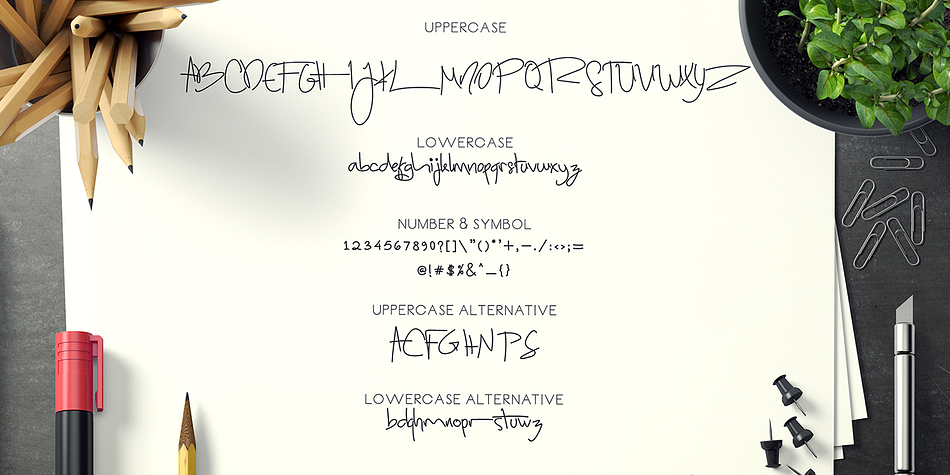 UPPERCASE
ABCDEFGHIJKLMNOPQRSTUVWXYZ
LOWERCASE
abcdefghijklmnopqrstuvwxyz
NUMBER & SYMBOL
1234567890?[]\"()*'+,-./:<>;=
@!#$%&^_{}
UPPERCASE ALTERNATIVE
ACFGHNPS
LOWERCASE ALTERNATIVE
bdqhmnopr stuwz